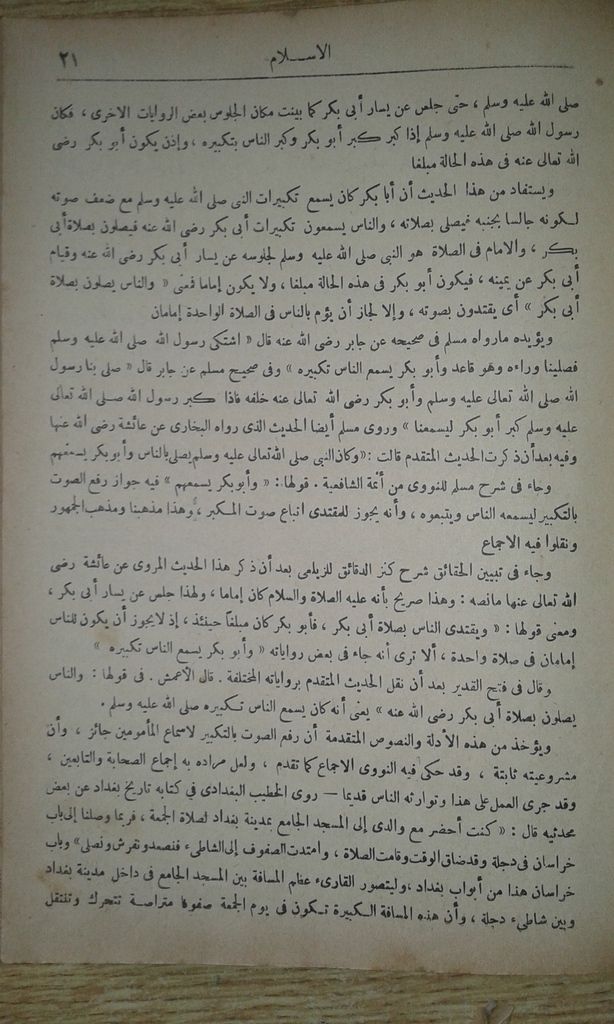 الاسلام
٢١
صلى الله عليه وسلم ، حتى جلس عن يسار أبى بكر كما بينت مكان الجلوس بعض الروايات الاخرى ، فكان
رسول الله صلى الله عليه وسلم إذا كبر كبر أبو بكر وكبر الناس بتكبيره ، وإذن يكون أبو بكر رضى
الله تعالى عنه فى هذه الحالة مبلغا
ويستفاد من هذا الحديث أن أبا بكر كان يسمع تكبيرات النبى صلى الله عليه وسلم مع ضعف صوته
لكونه جالسا بجنبه فيصلى بصلاته ، والناس يسمعون تكبيرات أبى بكر رضى الله عنه فيصلون بصلاة أبى
بكر ، والامام فى الصلاة هو النبى صلى الله عليه وسلم لجلوسه عن يسار أبى بكر رضى الله عنه وقيام
أبى بكر عن يمينه ، فيكون أبو بكر فى هذه الحالة مبلغا ، ولا يكون إماما فمعنى « والناس يصلون بصلاة
أبى بكر » أى يقتدون بصوته ، وإلا لجاز أن يؤم بالناس فى الصلاة الواحدة إمامان
ويؤيده مارواه مسلم فى صحيحه عن جابر رضى الله عنه قال « اشتكى رسول الله صلى الله عليه وسلم
فصلينا وراءه وهو قاعد وأبو بكر يسمع الناس تكبيره » وفى صحيح مسلم عن جابر قال « صلى بنا رسول
الله صلى الله تعالى عليه وسلم وأبو بكر رضى الله تعالى عنه خلفه فاذا كبر رسول الله صلى الله تعالى
عليه وسلم كبر أبو بكر ليسمعنا » وروى مسلم أيضا الحديث الذى رواه البخارى عن عائشة رضى الله عنها
وفيه بعد أن ذكرت الحديث المتقدم قالت : «وكان النبى صلى الله تعالى عليه وسلم يصلى بالناس وأبو بكر يسمعهم
وجاء فى شرح مسلم للنووى من أئمة الشافعية . قولها : « وأبو بكر يسمعهم » فيه جواز رفع الصوت
بالتكبير ليسمعه الناس ويتبعوه ، وأنه يجوز للمقتدى اتباع صوت المكبر ، وهذا مذهبنا ومذهب الجمهور
ونقلوا فيه الاجماع
وجاء فى تبيين الحقائق شرح كنز الدقائق للزيلعى بعد أن ذكر هذا الحديث المروى عن عائشة رضى
الله تعالى عنها مانصه : وهذا صريح بأنه عليه الصلاة والسلام كان إماما ، ولهذا جلس عن يسار أبى بكر ،
ومعنى قولها : « ويقتدى الناس بصلاة أبى بكر ، فأبو بكر كان مبلغاً حينئذ ، إذ لا يجوز أن يكون للناس
إمامان فى صلاة واحدة ، ألا ترى أنه جاء فى بعض رواياته « وأبو بكر يسمع الناس تكبيره »
وقال فى فتح القدير بعد أن نقل الحديث المتقدم برواياته المختلفة . قال الأعمش . فى قولها : والناس
يصلون بصلاة أبى بكر رضى الله عنه » يعنى أنه كان يسمع الناس تكبيره صلى الله عليه وسلم .
ويؤخذ من هذه الأدلة والنصوص المتقدمة أن رفع الصوت بالتكبير لاسماع المأمومين جائز ، وأن
مشروعيته ثابتة ، وقد حكى فيه النووى الاجماع كما تقدم ، ولعل مراده به إجماع الصحابة والتابعين ،
وقد جرى العمل على هذا وتوارثه الناس قديما — روى الخطيب البغدادى فى كتابه تاريخ بغداد عن بعض
محدثيه قال : « كنت أحضر مع والدى إلى المسجد الجامع بمدينة بغداد لصلاة الجمعة ، فربما وصلنا إلى باب
خراسان فى دجلة وقد ضاق الوقت وقامت الصلاة ، وامتدت الصفوف إلى الشاطىء فنصعد ونفرش ونصلى» وباب
خراسان هذا من أبواب بغداد ، وليتصور القارىء عظم المسافة بين المسجد الجامع فى داخل مدينة بغداد
وبين شاطىء دجلة ، وأن هذه المسافة الكبيرة تكون فى يوم الجمعة صفوفا متراصة تتحرك وتنتقل